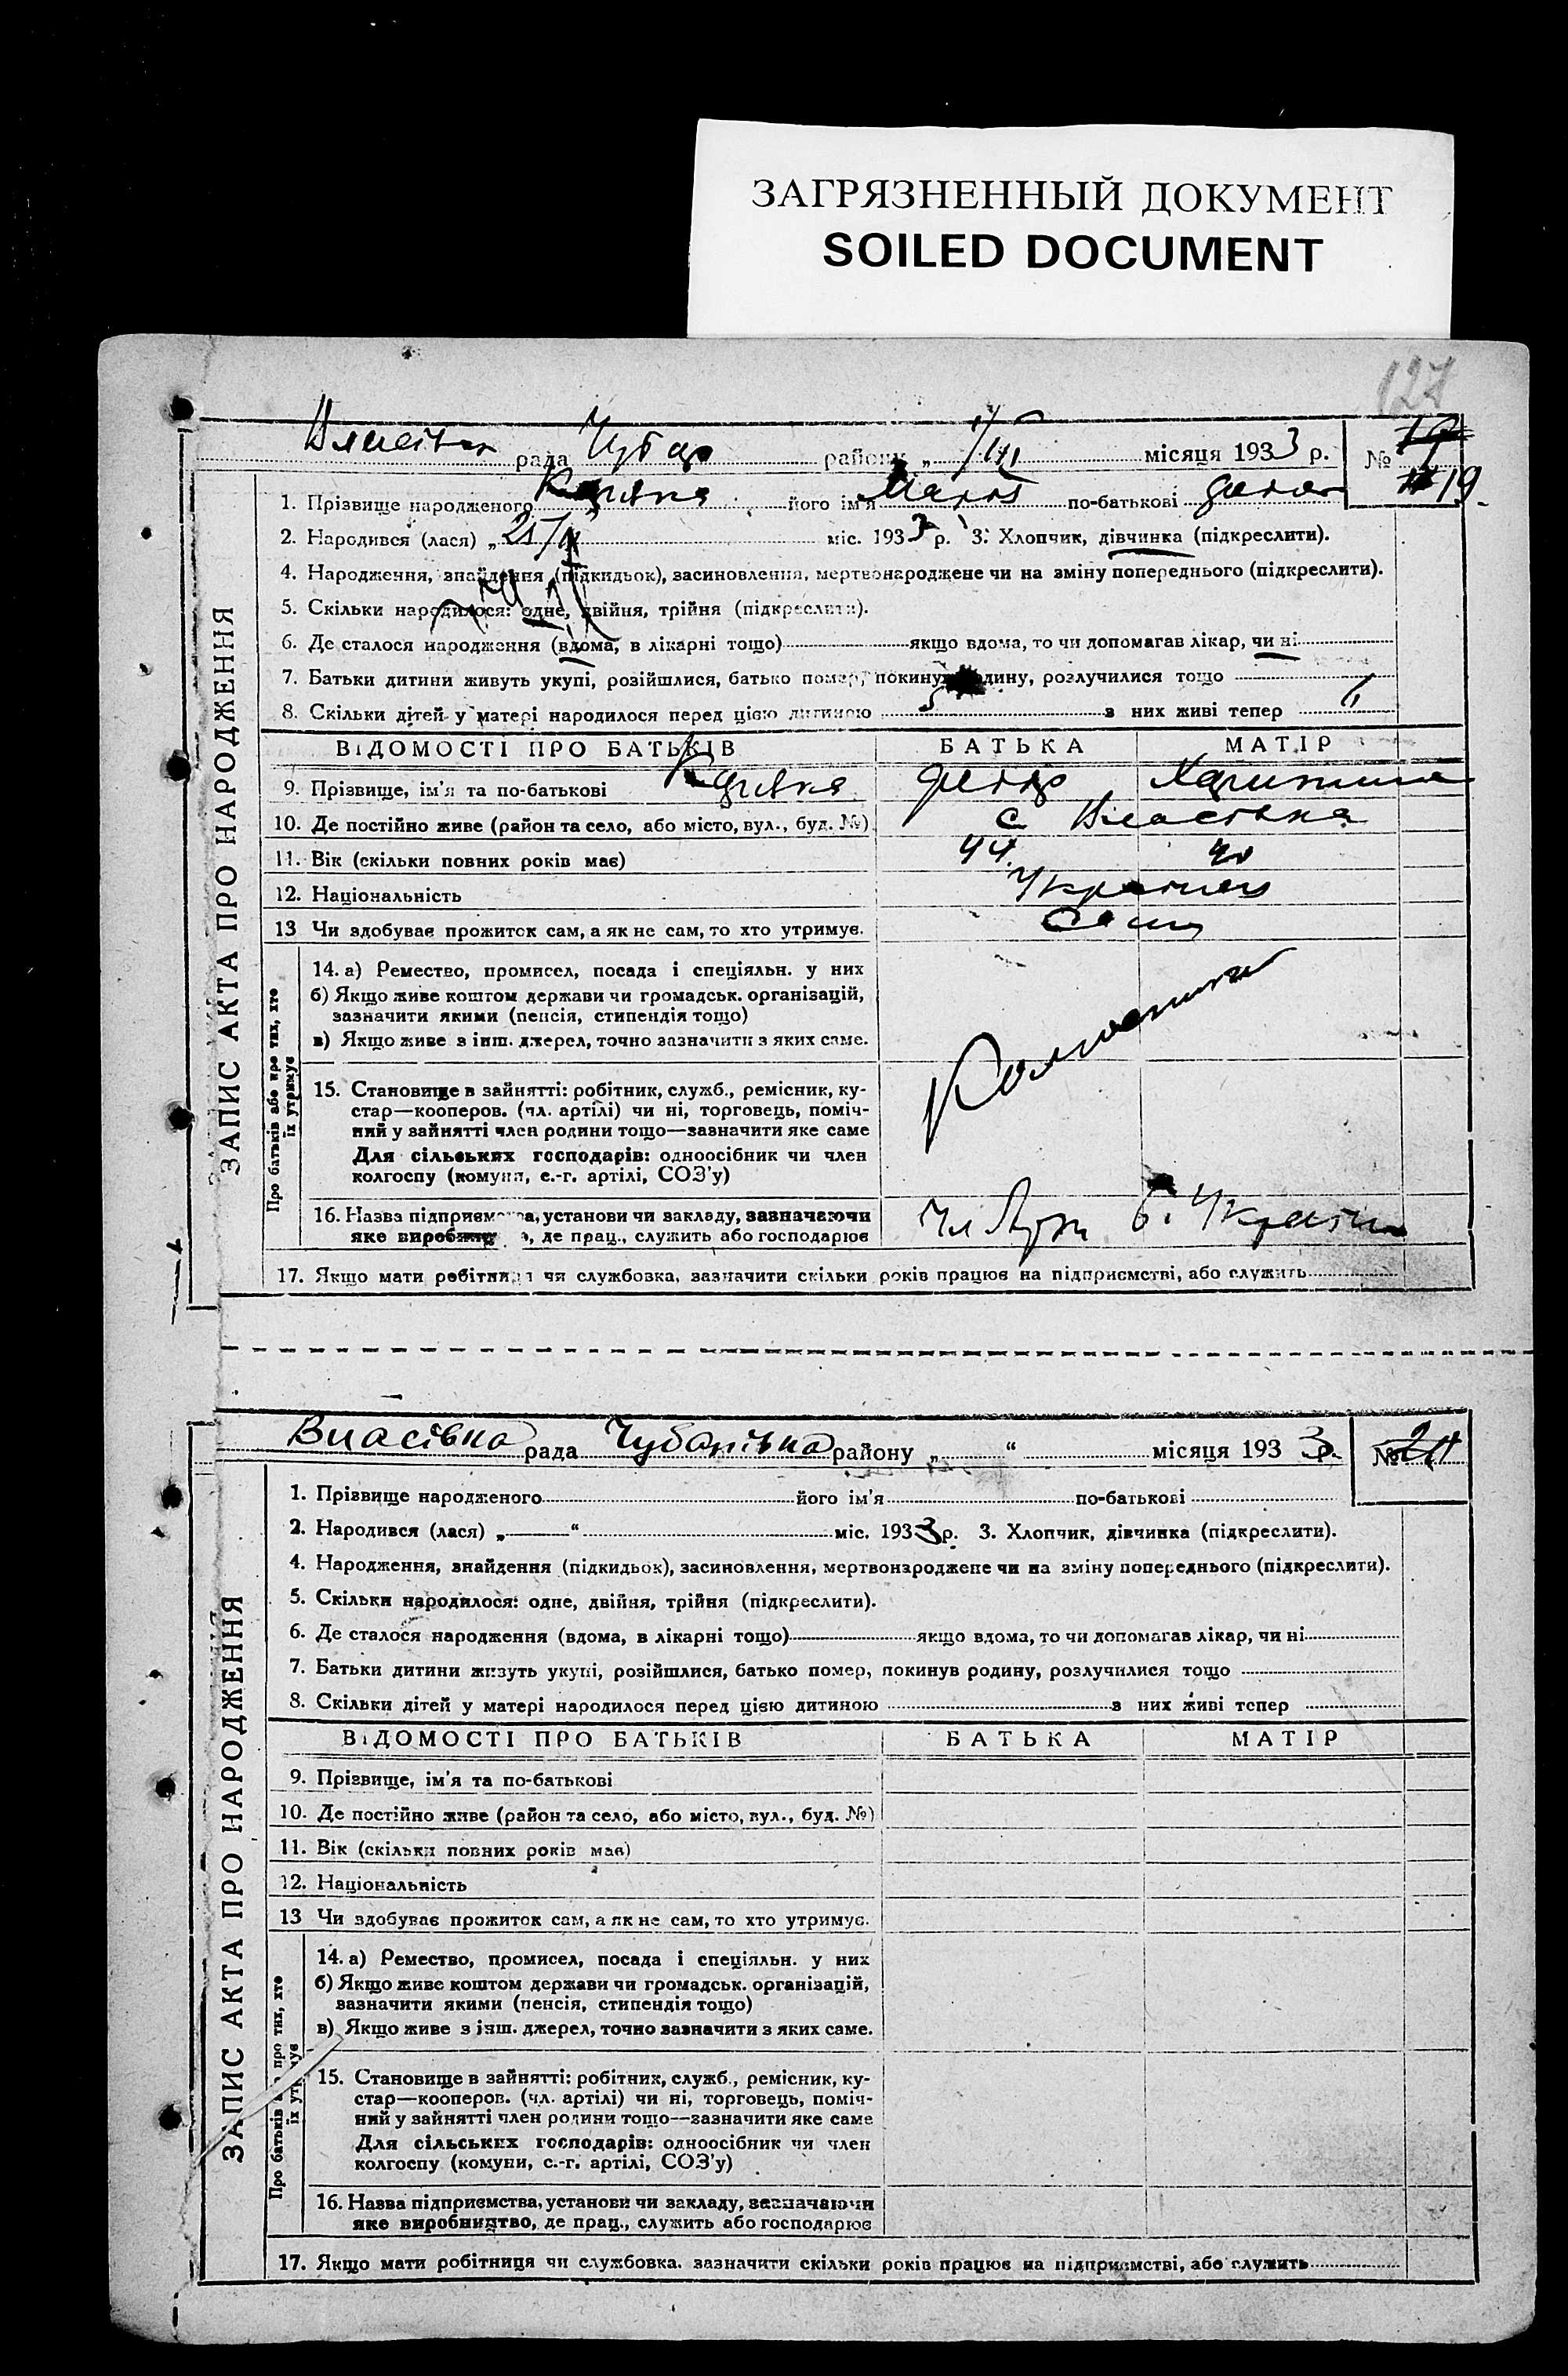 ЗАГРЯЗНЕННЫЙ ДОКУМЕНТ
SOILED DOCUMENT
127
рада Чубар району „ місяця 1933 р. № 19
ЗАПИС АКТА ПРО НАРОДЖЕННЯ
1. Прізвище народженого його ім'я по-батькові
2. Народився (лася) „ міс. 1933 р. 3. Хлопчик, дівчинка (підкреслити).
4. Народження, знайдення (підкидьок), засиновлення, мертвонароджене чи на зміну попереднього (підкреслити).
5. Скільки народилося: одне, двійня, трійня (підкреслити).
6. Де сталося народження (вдома, в лікарні тощо) якщо вдома, то чи допомагав лікар, чи ні
7. Батьки дитини живуть укупі, розійшлися, батько помер, покинув родину, розлучилися тощо
8. Скільки дітей у матері народилося перед цією дитиною 5 з них живі тепер
ВІДОМОСТІ ПРО БАТЬКІВ БАТЬКА МАТІР
9. Прізвище, ім'я та по-батькові
10. Де постійно живе (район та село, або місто, вул., буд. №) с Власівка
11. Вік (скільки повних років має) 44 40
12. Національність
13 Чи здобуває прожиток сам, а як не сам, то хто утримує. Сами
Про батьків або про тих, хто їх утримує
14. а) Ремество, промисел, посада і спеціяльн. у них
б) Якщо живе коштом держави чи громадськ. організацій,
зазначити якими (пенсія, стипендія тощо)
в) Якщо живе з інш. джерел, точно зазначити з яких саме.
15. Становище в зайнятті: робітник, служб., ремісник, ку-
стар—кооперов. (чл. артілі) чи ні, торговець, поміч-
ний у зайнятті член родини тощо—зазначити яке саме
Для сільських господарів: одноосібник чи член
колгоспу (комуни, с.-г. артілі, СОЗ'у)
16. Назва підприємства, установи чи закладу, зазначаючи
яке виробництво, де прац., служить або господарює
17. Якщо мати робітниця чи службовка, зазначити скільки років працює на підприємстві, або служить
Власівка рада Чубарівка району „ “ місяця 1933 р. №
ЗАПИС АКТА ПРО НАРОДЖЕННЯ
1. Прізвище народженого його ім'я по-батькові
2. Народився (лася) „ “ міс. 1933 р. 3. Хлопчик, дівчинка (підкреслити).
4. Народження, знайдення (підкидьок), засиновлення, мертвонароджене чи на зміну попереднього (підкреслити).
5. Скільки народилося: одне, двійня, трійня (підкреслити).
6. Де сталося народження (вдома, в лікарні тощо) якщо вдома, то чи допомагав лікар, чи ні
7. Батьки дитини живуть укупі, розійшлися, батько помер, покинув родину, розлучилися тощо
8. Скільки дітей у матері народилося перед цією дитиною з них живі тепер
ВІДОМОСТІ ПРО БАТЬКІВ БАТЬКА МАТІР
9. Прізвище, ім'я та по-батькові
10. Де постійно живе (район та село, або місто, вул., буд. №)
11. Вік (скільки повних років має)
12. Національність
13 Чи здобуває прожиток сам, а як не сам, то хто утримує.
Про батьків або про тих, хто їх утримує
14. а) Ремество, промисел, посада і спеціяльн. у них
б) Якщо живе коштом держави чи громадськ. організацій,
зазначити якими (пенсія, стипендія тощо)
в) Якщо живе з інш. джерел, точно зазначити з яких саме.
15. Становище в зайнятті: робітник, служб., ремісник, ку-
стар—кооперов. (чл. артілі) чи ні, торговець, поміч-
ний у зайнятті член родини тощо—зазначити яке саме
Для сільських господарів: одноосібник чи член
колгоспу (комуни, с.-г. артілі, СОЗ'у)
16. Назва підприємства, установи чи закладу, зазначаючи
яке виробництво, де прац., служить або господарює
17. Якщо мати робітниця чи службовка. зазначити скільки років працює на підприємстві, або служить